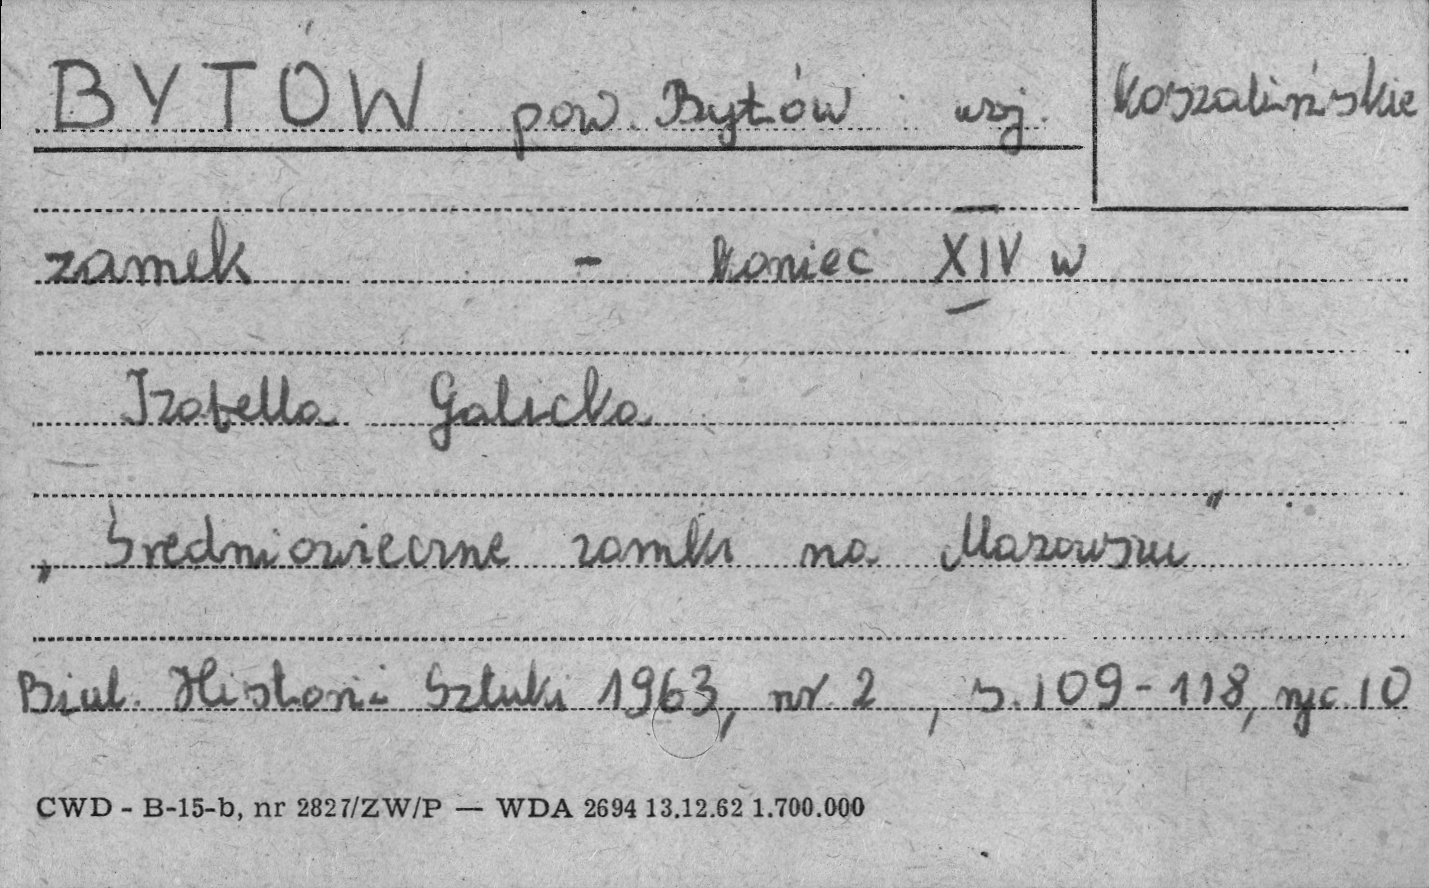 BYTÓW pow. Bytów woj. Koszalińskie
zamek - koniec XIV w
Izabella Galicka
„Średniowieczne zamki na Mazowszu"
Biul. Historii Sztuki 1963, nr. 2, s. 109-118, ryc. 10
CWD - B-15-b, nr 2827/ZW/P — WDA 2694 13.12.62 1.700.000